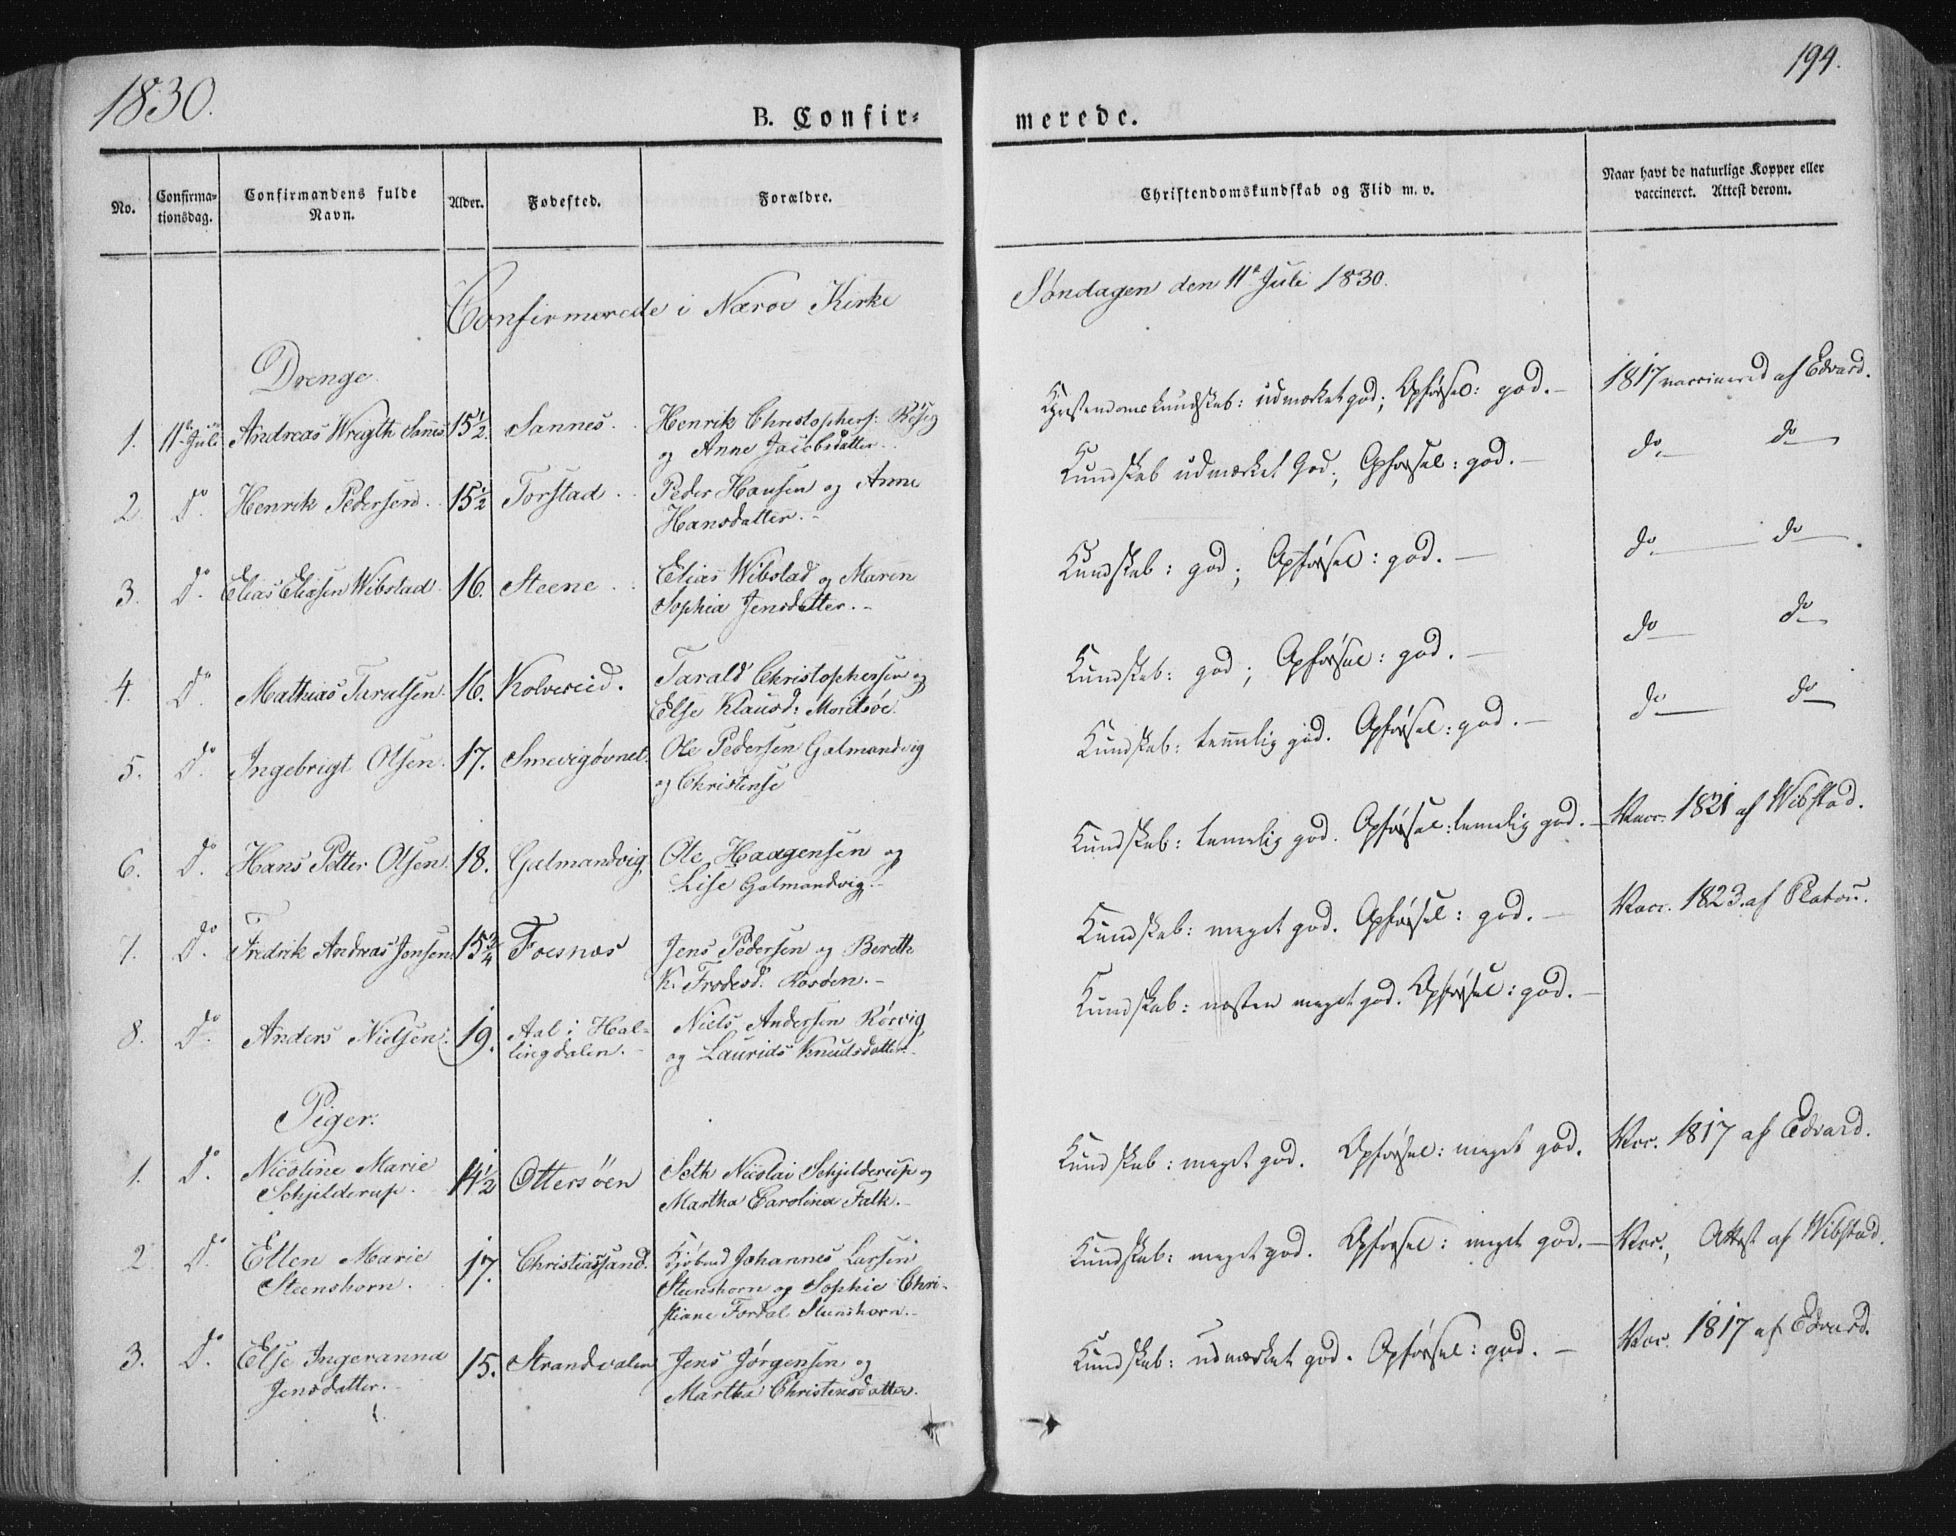 1830.
194.
B. Confir-
merede.
No.
Confirma-
tionsdag.
Confirmandens fulde
Navn.
Alder.
Fødested.
Forældre.
Christendomskundskab og Flid m. v.
Naar havt de naturlige Kopper eller
vaccineret. Attest derom.
Confirmerede i Nærøe Kirke
Søndagen den 11te Juli 1830.
Drenge
1. 11te Juli Andreas Wrigth Sannes 15½. Sannes. Henrik Christophers:
og Anne Jacobsdatter.
Christendomskundskab: udmærket god; Opførsel: god. 1817 vaccinered af Edvard.
2. Do. Henrik Pedersen. 15½ Torstad. Peder Hansen og Anne
Hansdatter.
Kundskab udmærket God; Opførsel: god. do do
3. Do. Elias Eliasen Wibstad 16. Steene. Elias Wibstad og Maren
Sophia Jensdatter.
Kundskab: god; Opførsel: god. do do
4. Do Mathias Tarulsen 16. Kolvereid. Tarald Christophersen og
Else Klausd: Moritsøe.
Kundskab: god; Opførsel: god. do do
5. Do. Ingebrigt Olsen. 17. Smevigøvnet. Ole Pedersen Galmandvig
og Christense
Kundskab: temmelig god. Opførsel: god. do do
6. Do. Hans Petter Olsen. 18. Galmandvig Ole Haagensen og
Lise Galmandvig.
Kundskab: temelig god. Opførsel: temelig god. Vacc. 1821 af Wibstad.
7. Do. Fredrik Andreas Jensen 15¾ Foesnæs Jens Pedersen og Berethe
K. Frodesd. Rosøen.
Kundskab: meget god. Opførsel: god. Vacc. 1823. af Platou.
8. Do. Anders Nielsen. 19. Aal i Hal-
lingdalen. Niels Andersen Rørvig
og Laurids Knudsdatter.
Kundskab: næsten meget god. Opførsel: god.
Piger.
1. Do. Nicoline Marie
Schjelderup. 14½ Ottersøen Seth Nicolai Schjelderup og
Martha Carolina Falk.
Kundskab: meget god. Opførsel: meget god. Vacc. 1817 af Edvard.
2. Do. Ellen Marie
Steenshorn. 17. Christiansund. Kjøbmd Johannes Larsen
Steenshorn og Sophie Chri-
stiane Fordal Steenshorn.
Kundskab: meget god. Opførsel: meget god. Vac., Attest af Wibstad.
3. Do. Else Ingeranna
Jensdatter. 15. Strandvalen Jens Jørgensen og
Martha Christensdatter.
Kundskab: udmærket god. Opførsel: god. Vac. 1817 af Edvard.